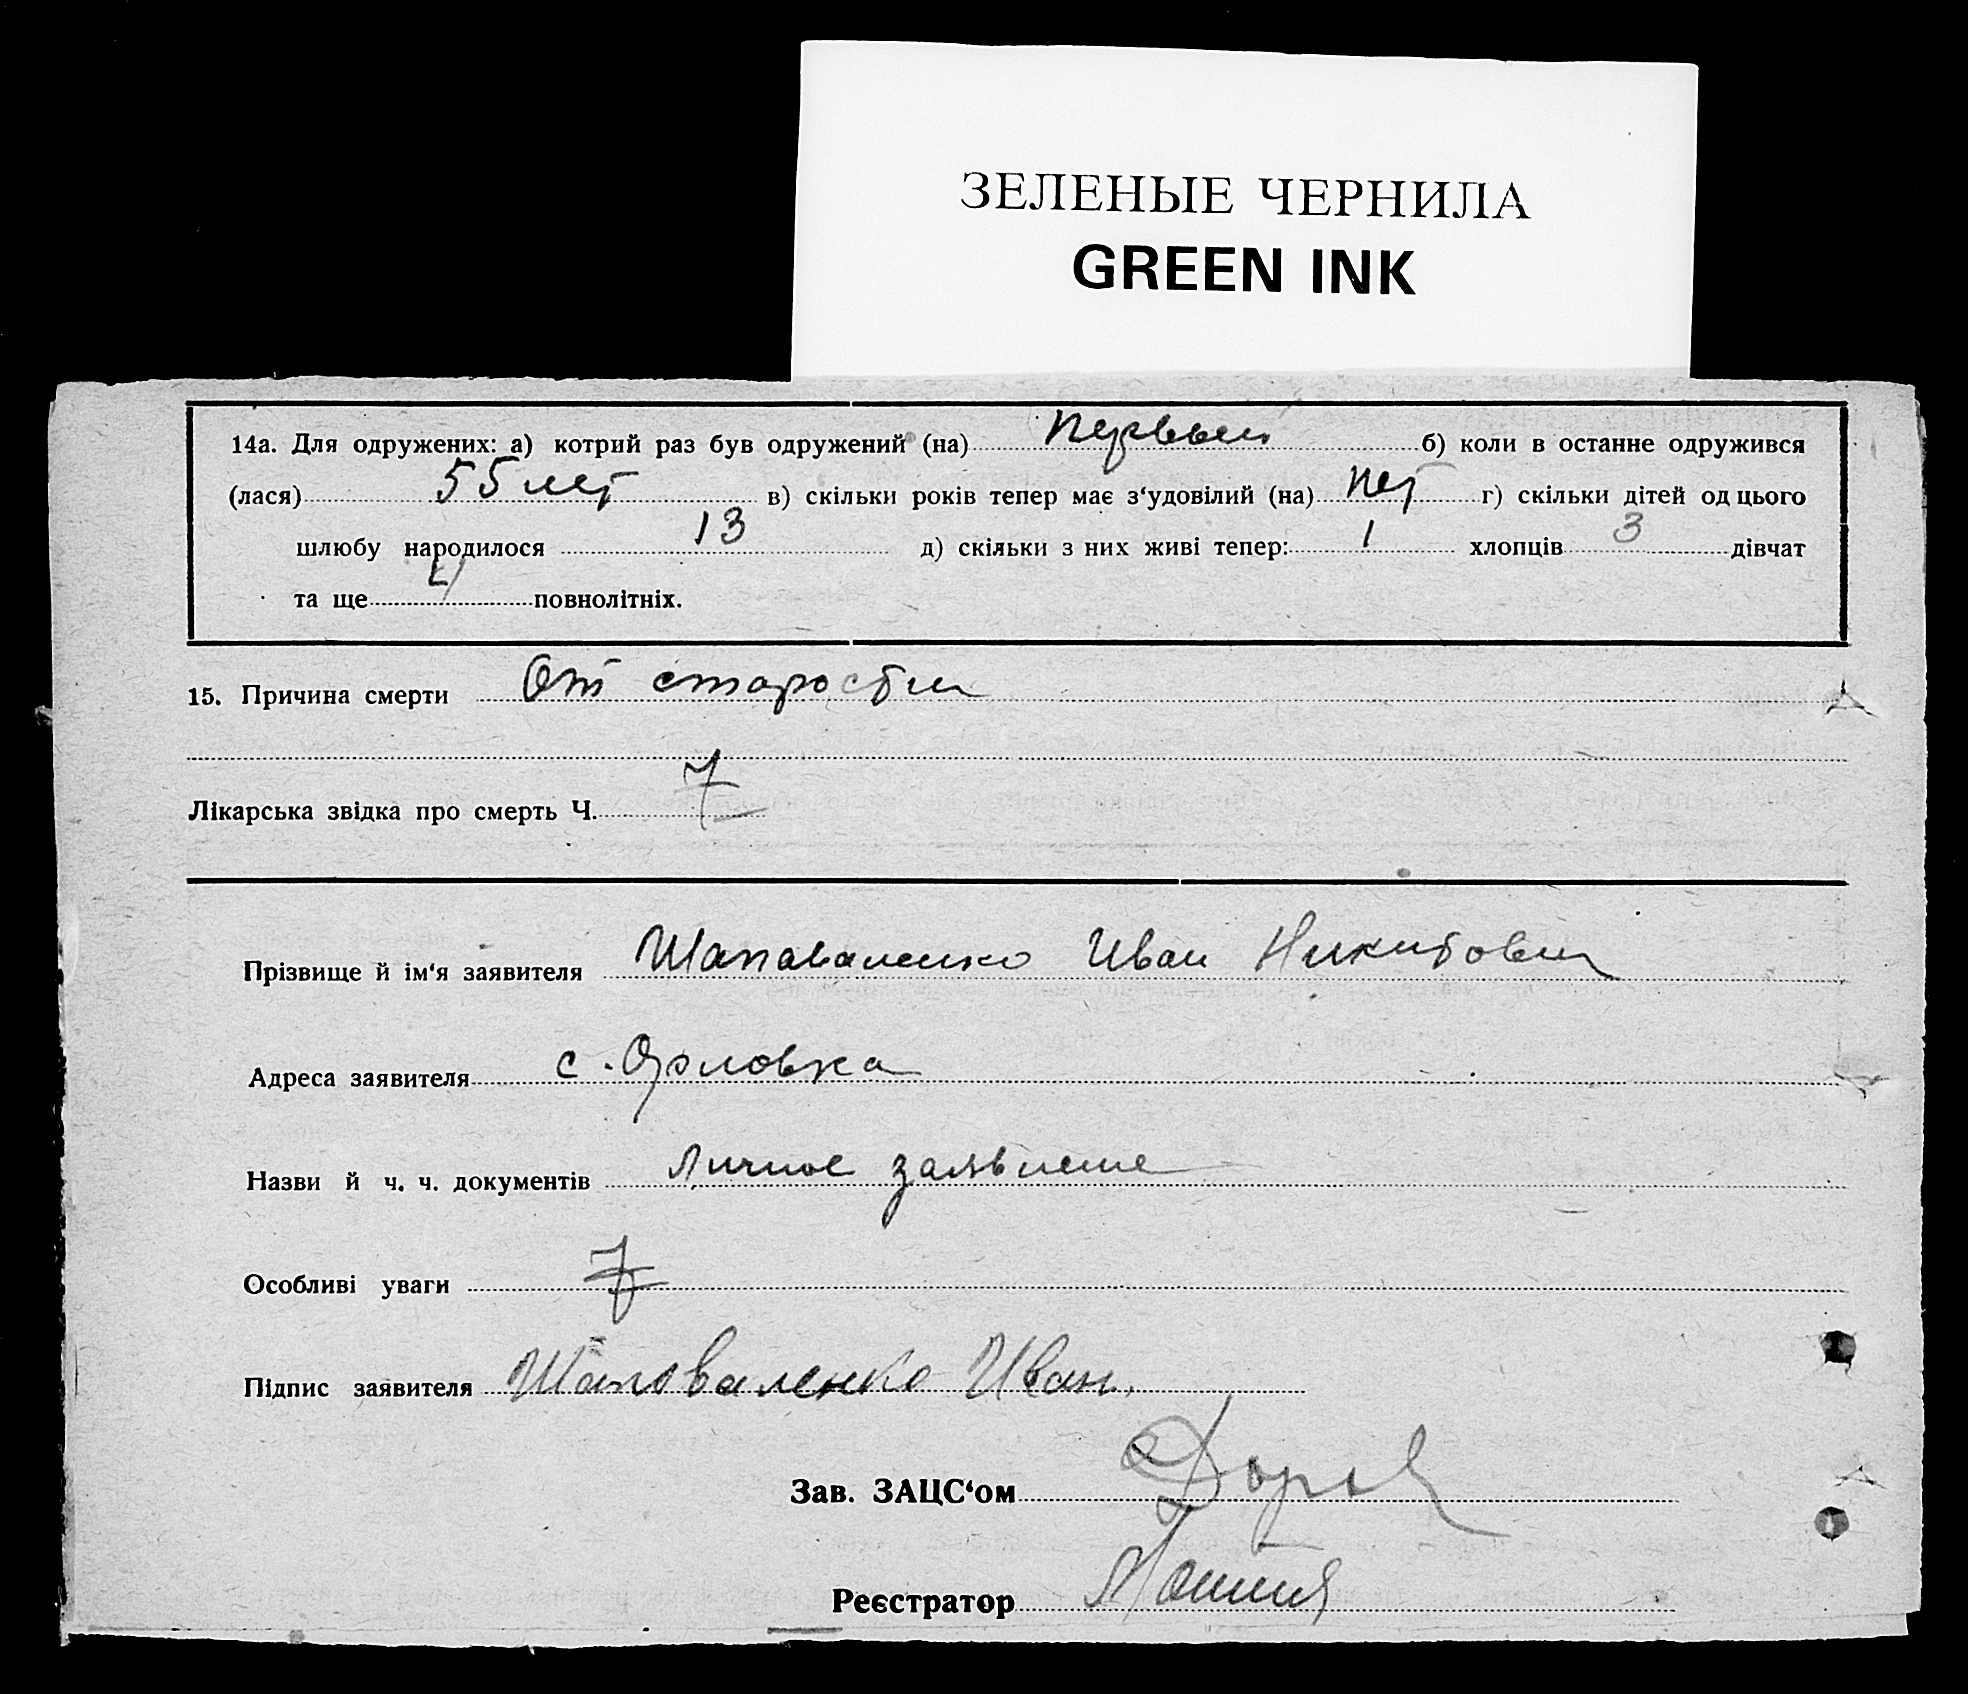 ЗЕЛЕНЫЕ ЧЕРНИЛА
GREEN INK
14а. Для одружених: а) котрий раз був одружений (на) первый б) коли в останне одружився
(лася) 55 лет в) скільки років тепер має з‘удовілий (на) нет г) скільки дітей од цього
шлюбу народилося 13 д) скільки з них живі тепер: 1 хлопців 3 дівчат
та ще 4 повнолітніх.
15. Причина смерти От старости
Лікарська звідка про смерть Ч.
Прізвище й ім‘я заявителя Шаповаленко Иван Никитович
Адреса заявителя с. Орловка
Назви й ч. ч. документів личное заявление
Особливі уваги
Підпис заявителя Шаповаленко Иван.
Зав. ЗАЦС‘ом
Реєстратор